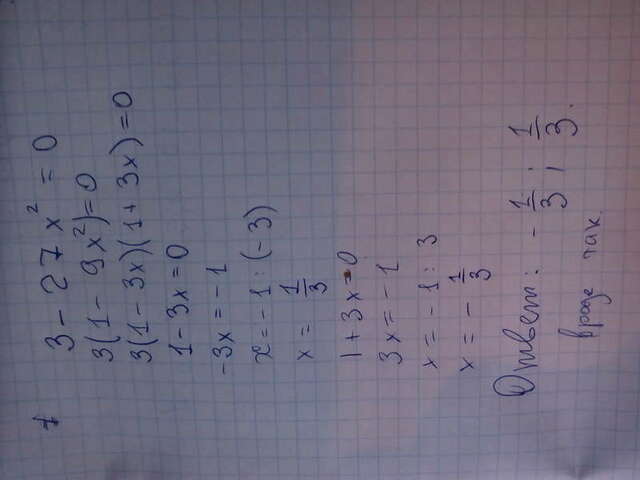 3 - 27x² = 0
3(1 - 9x²)=0
3(1 - 3x)(1 + 3x)=0
1 - 3x = 0
-3x = -1
x = -1 : (-3)
x = 1/3
1 + 3x = 0
3x = -1
x = -1 : 3
x = - 1/3
Ответ: - 1/3 ; 1/3.
вроде так.